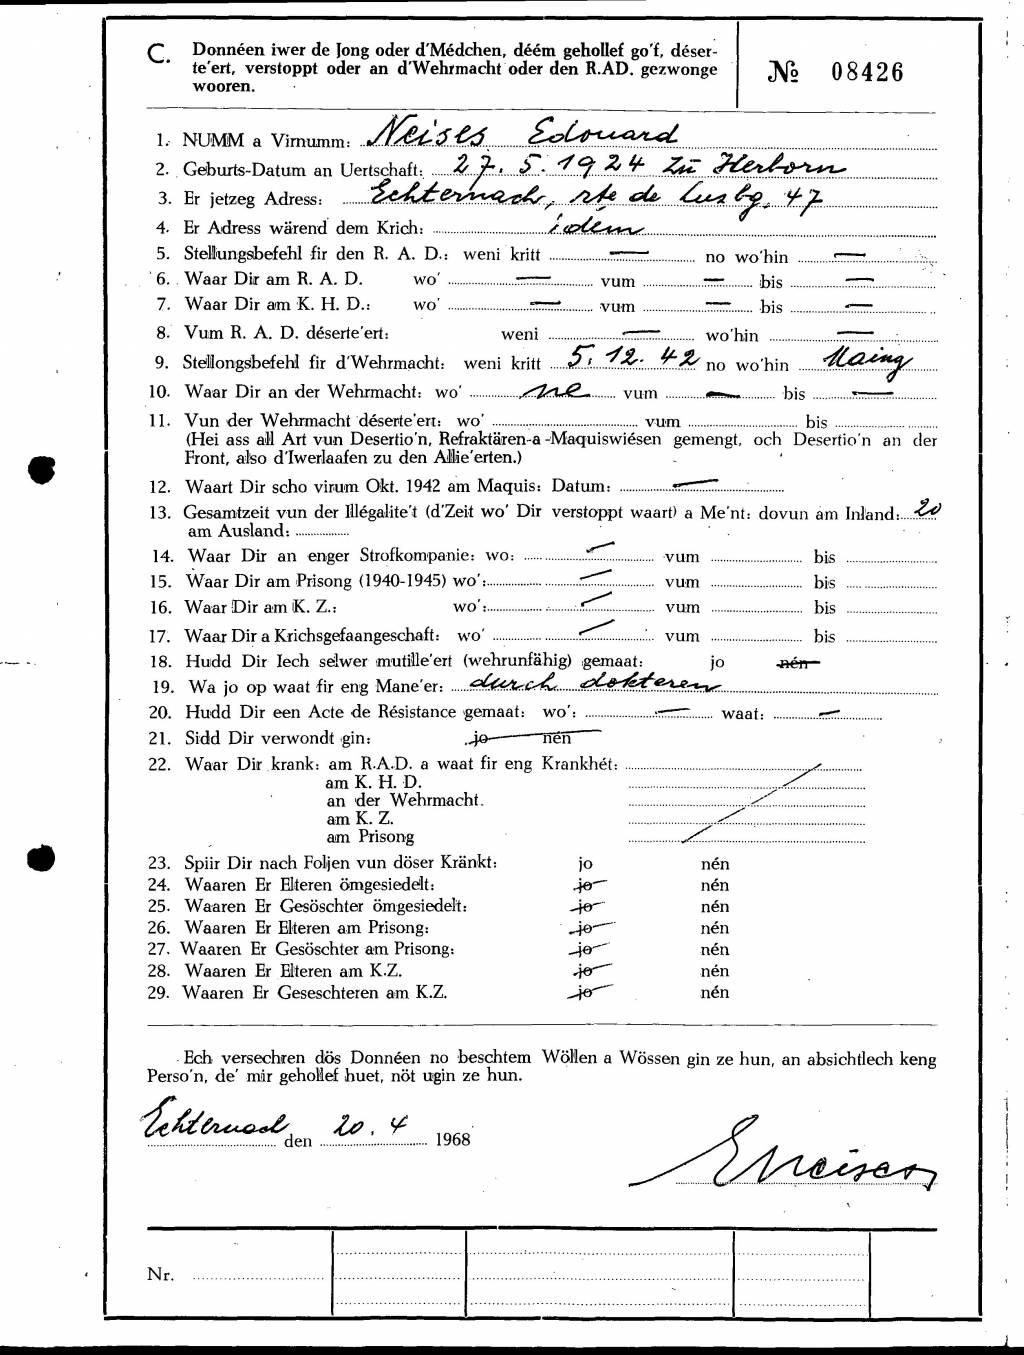 C. Donnéen iwer de Jong oder d'Médchen, déém gehollef go'f, déser-
te'ert, verstoppt oder an d'Wehrmacht oder den R.AD. gezwonge
wooren.
№ 08426
1. NUMM a Virnumm: Neises Edouard
2. Geburts-Datum an Uertschaft: 27. 5. 1924 zu Herborn
3. Er jetzeg Adress: Echternach, rte de Luxbg, 47
4. Er Adress wärend dem Krich: idem
5. Stellungsbefehl fir den R. A. D.: weni kritt — no wo'hin —
6. Waar Dir am R. A. D. wo' — vum — bis —
7. Waar Dir am K. H. D.: wo' — vum — bis —
8. Vum R. A. D. déserte'ert: weni — wo'hin —
9. Stellongsbefehl fir d'Wehrmacht: weni kritt 5. 12. 42 no wo'hin Mainz
10. Waar Dir an der Wehrmacht: wo' ne vum — bis —
11. Vun der Wehrmacht déserte'ert: wo' vum bis
(Hei ass all Art vun Desertio'n, Refraktären-a -Maquiswiésen gemengt, och Desertio'n an der
Front, also d'Iwerlaafen zu den Allie'erten.)
12. Waart Dir scho virum Okt. 1942 am Maquis: Datum: —
13. Gesamtzeit vun der Illégalite't (d'Zeit wo' Dir verstoppt waart) a Me'nt: dovun am Inland: 20
am Ausland:
14. Waar Dir an enger Strofkompanie: wo: — vum bis
15. Waar Dir am Prisong (1940-1945) wo': — vum bis
16. Waar Dir am K. Z.: wo': — vum bis
17. Waar Dir a Krichsgefaangeschaft: wo' — vum bis
18. Hudd Dir Iech selwer mutille'ert (wehrunfähig) gemaat: jo nén
19. Wa jo op waat fir eng Mane'er: durch dokteren
20. Hudd Dir een Acte de Résistance gemaat: wo': — waat: —
21. Sidd Dir verwondt gin: jo nén
22. Waar Dir krank: am R.A.D. a waat fir eng Krankhét:
am K. H. D.
an der Wehrmacht.
am K. Z.
am Prisong
23. Spiir Dir nach Foljen vun döser Kränkt: jo nén
24. Waaren Er Elteren ömgesiedelt: jo nén
25. Waaren Er Gesöschter ömgesiedelt: jo nén
26. Waaren Er Elteren am Prisong: jo nén
27. Waaren Er Gesöschter am Prisong: jo nén
28. Waaren Er Elteren am K.Z. jo nén
29. Waaren Er Geseschteren am K.Z. jo nén
Ech versechren dös Donnéen no beschtem Wöllen a Wössen gin ze hun, an absichtlech keng
Perso'n, de' mir gehollef huet, nöt ugin ze hun.
Echternach den 20. 4 1968
E Neises
Nr.